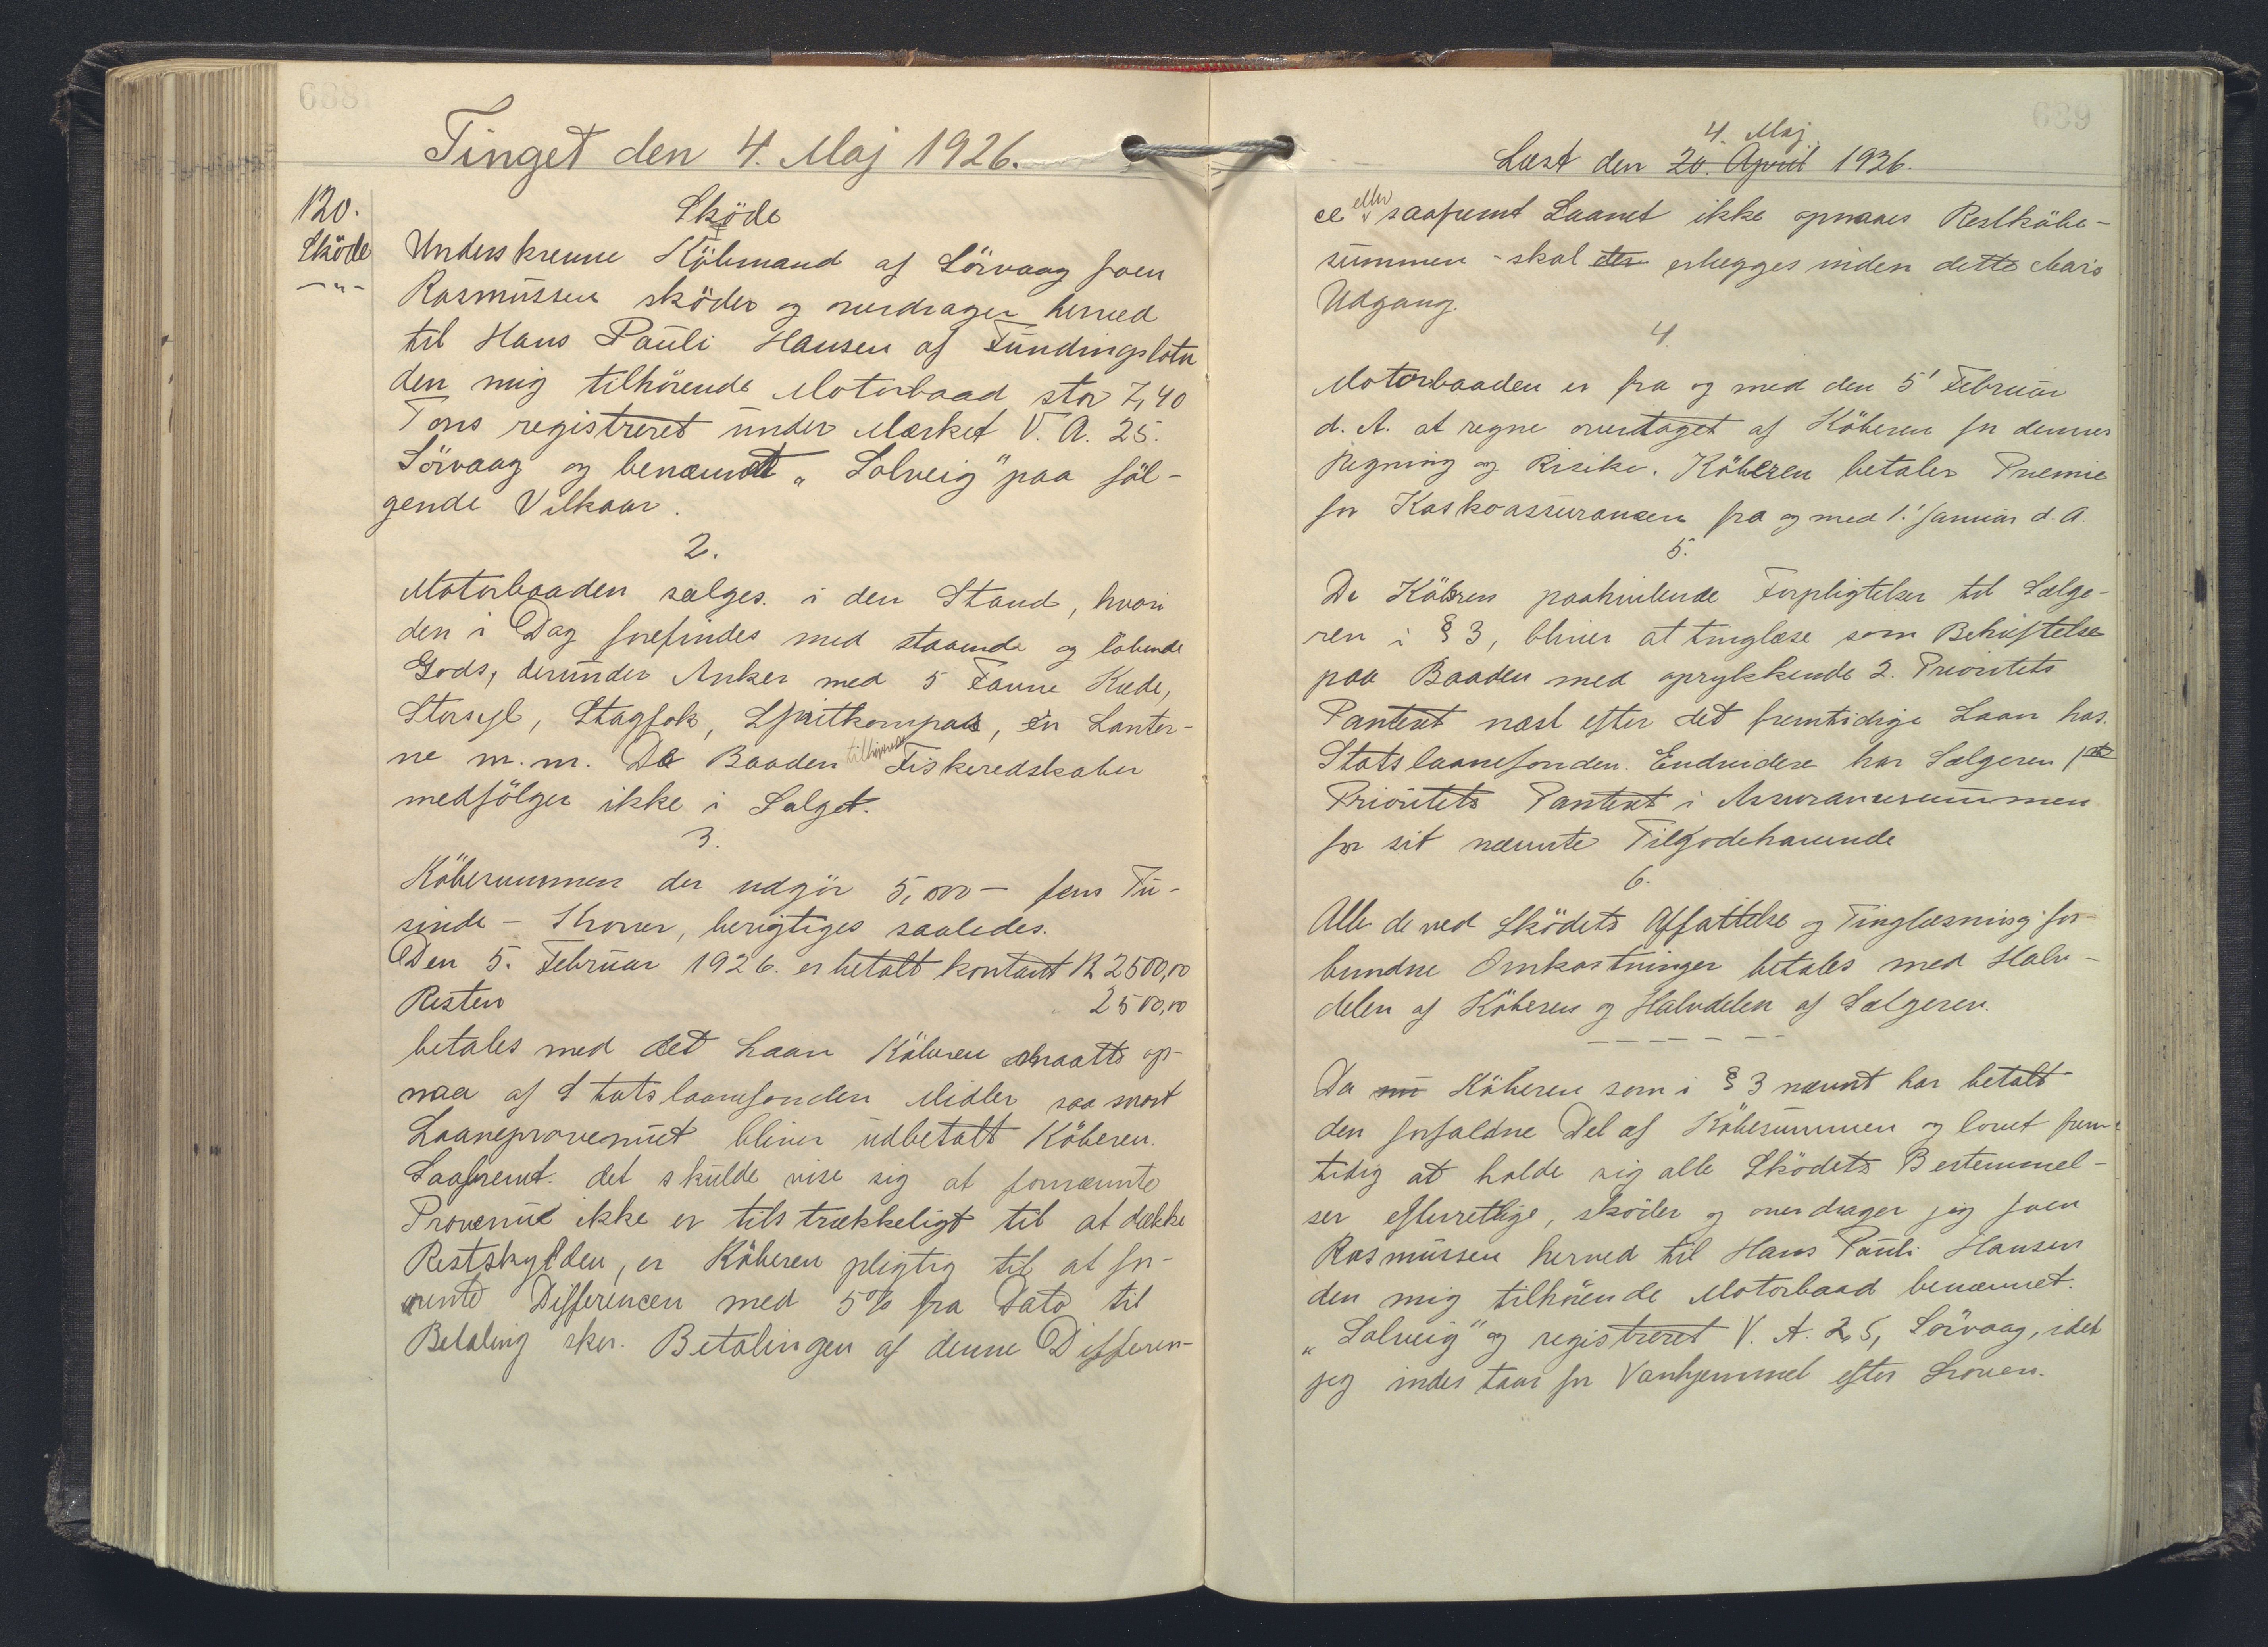 688
Tinget den 4. Maj 1926.
120.
Sköde
Sköde
Underskrevne Köbmand af Sörvaag Joen
Rasmussen sköder og overdrager herved
til Hans Pauli Hansen af Fundingsbotn
den mig tilhörende Motorbaad stor 7,40
Tons registreret under Mærket V. A. 25.
Sörvaag og benævnt „Solveig" paa föl-
gende Vilkaar.
2.
Motorbaaden sælges i den Stand, hvori
den i Dag forefindes med staaende og löbende
Gods, derunder Anker med 5 Favne Kæde,
Storsejl, Stagfok, Spritkompas, en Lanter-
ne m.m. De Baaden tilhörende Fiskeredskaber
medfölger ikke i Salget.
3.
Köbesummen der udgör 5,000 - fem Tu-
sinde - Kroner, berigtiges saaledes.
Den 5. Februar 1926. er betalt kontant Kr 2500,00
Resten 2500,00
betales med det Laan Köberen maatte op-
naa af Statslaanefonden Midler saa snart
Laaneprovenuet bliver udbetalt Köberen.
Saafremt det skulde vise sig at fornævnte
Provenue ikke er tilstrækkeligt til at dække
Restskylden, er Köberen pligtig til at for-
rente Differencen med 5% fra Dato til
Betaling sker. Betalingen af denne Differen-
689
4. Maj
Læst den 20. April 1926.
ce eller saafremt Laanet ikke opnaaes Restköbe-
summen - skal erlægges inden dette Aars
Udgang.
4.
Motorbaaden er fra og med den 5' Februar
d. A. at regne overtaget af Köberen for dennes
Regning og Risiko. Köberen betaler Præmie
for Kaskoassurancen fra og med 1.' Januar d. A.
5.
De Köbren paahvilende Forpligtelser til Sælge-
ren i § 3, bliver at tinglæse som Behæftelse
paa Baaden med oprykkende 2. Prioritets
Panteret næst efter det fremtidige Laan hos
Statslaanefonden. Endvidere har Sælgeren
Prioritets Panteret i Assurancesummen
for sit nævnte Tilgodehavende
6.
Alle de ved Sködets Affattelse og Tinglæsning for-
bundne Omkostninger betales med Halv-
delen af Köberen og Halvdelen af Sælgeren.
Da nu Köberen som i § 3 nævnt har betalt
den forfaldne Del af Köbesummen og lovet frem-
tidig at holde sig alle Sködets Bestemmel-
ser efterrettlige, sköder og overdrager jeg Joen
Rasmussen herved til Hans Pauli Hansen
den mig tilhörende Motorbaad benævnet
„Solveig" og registreret V. A. 25, Sörvaag, idet
jeg inder taar for Vanhjemmel efter Loven.